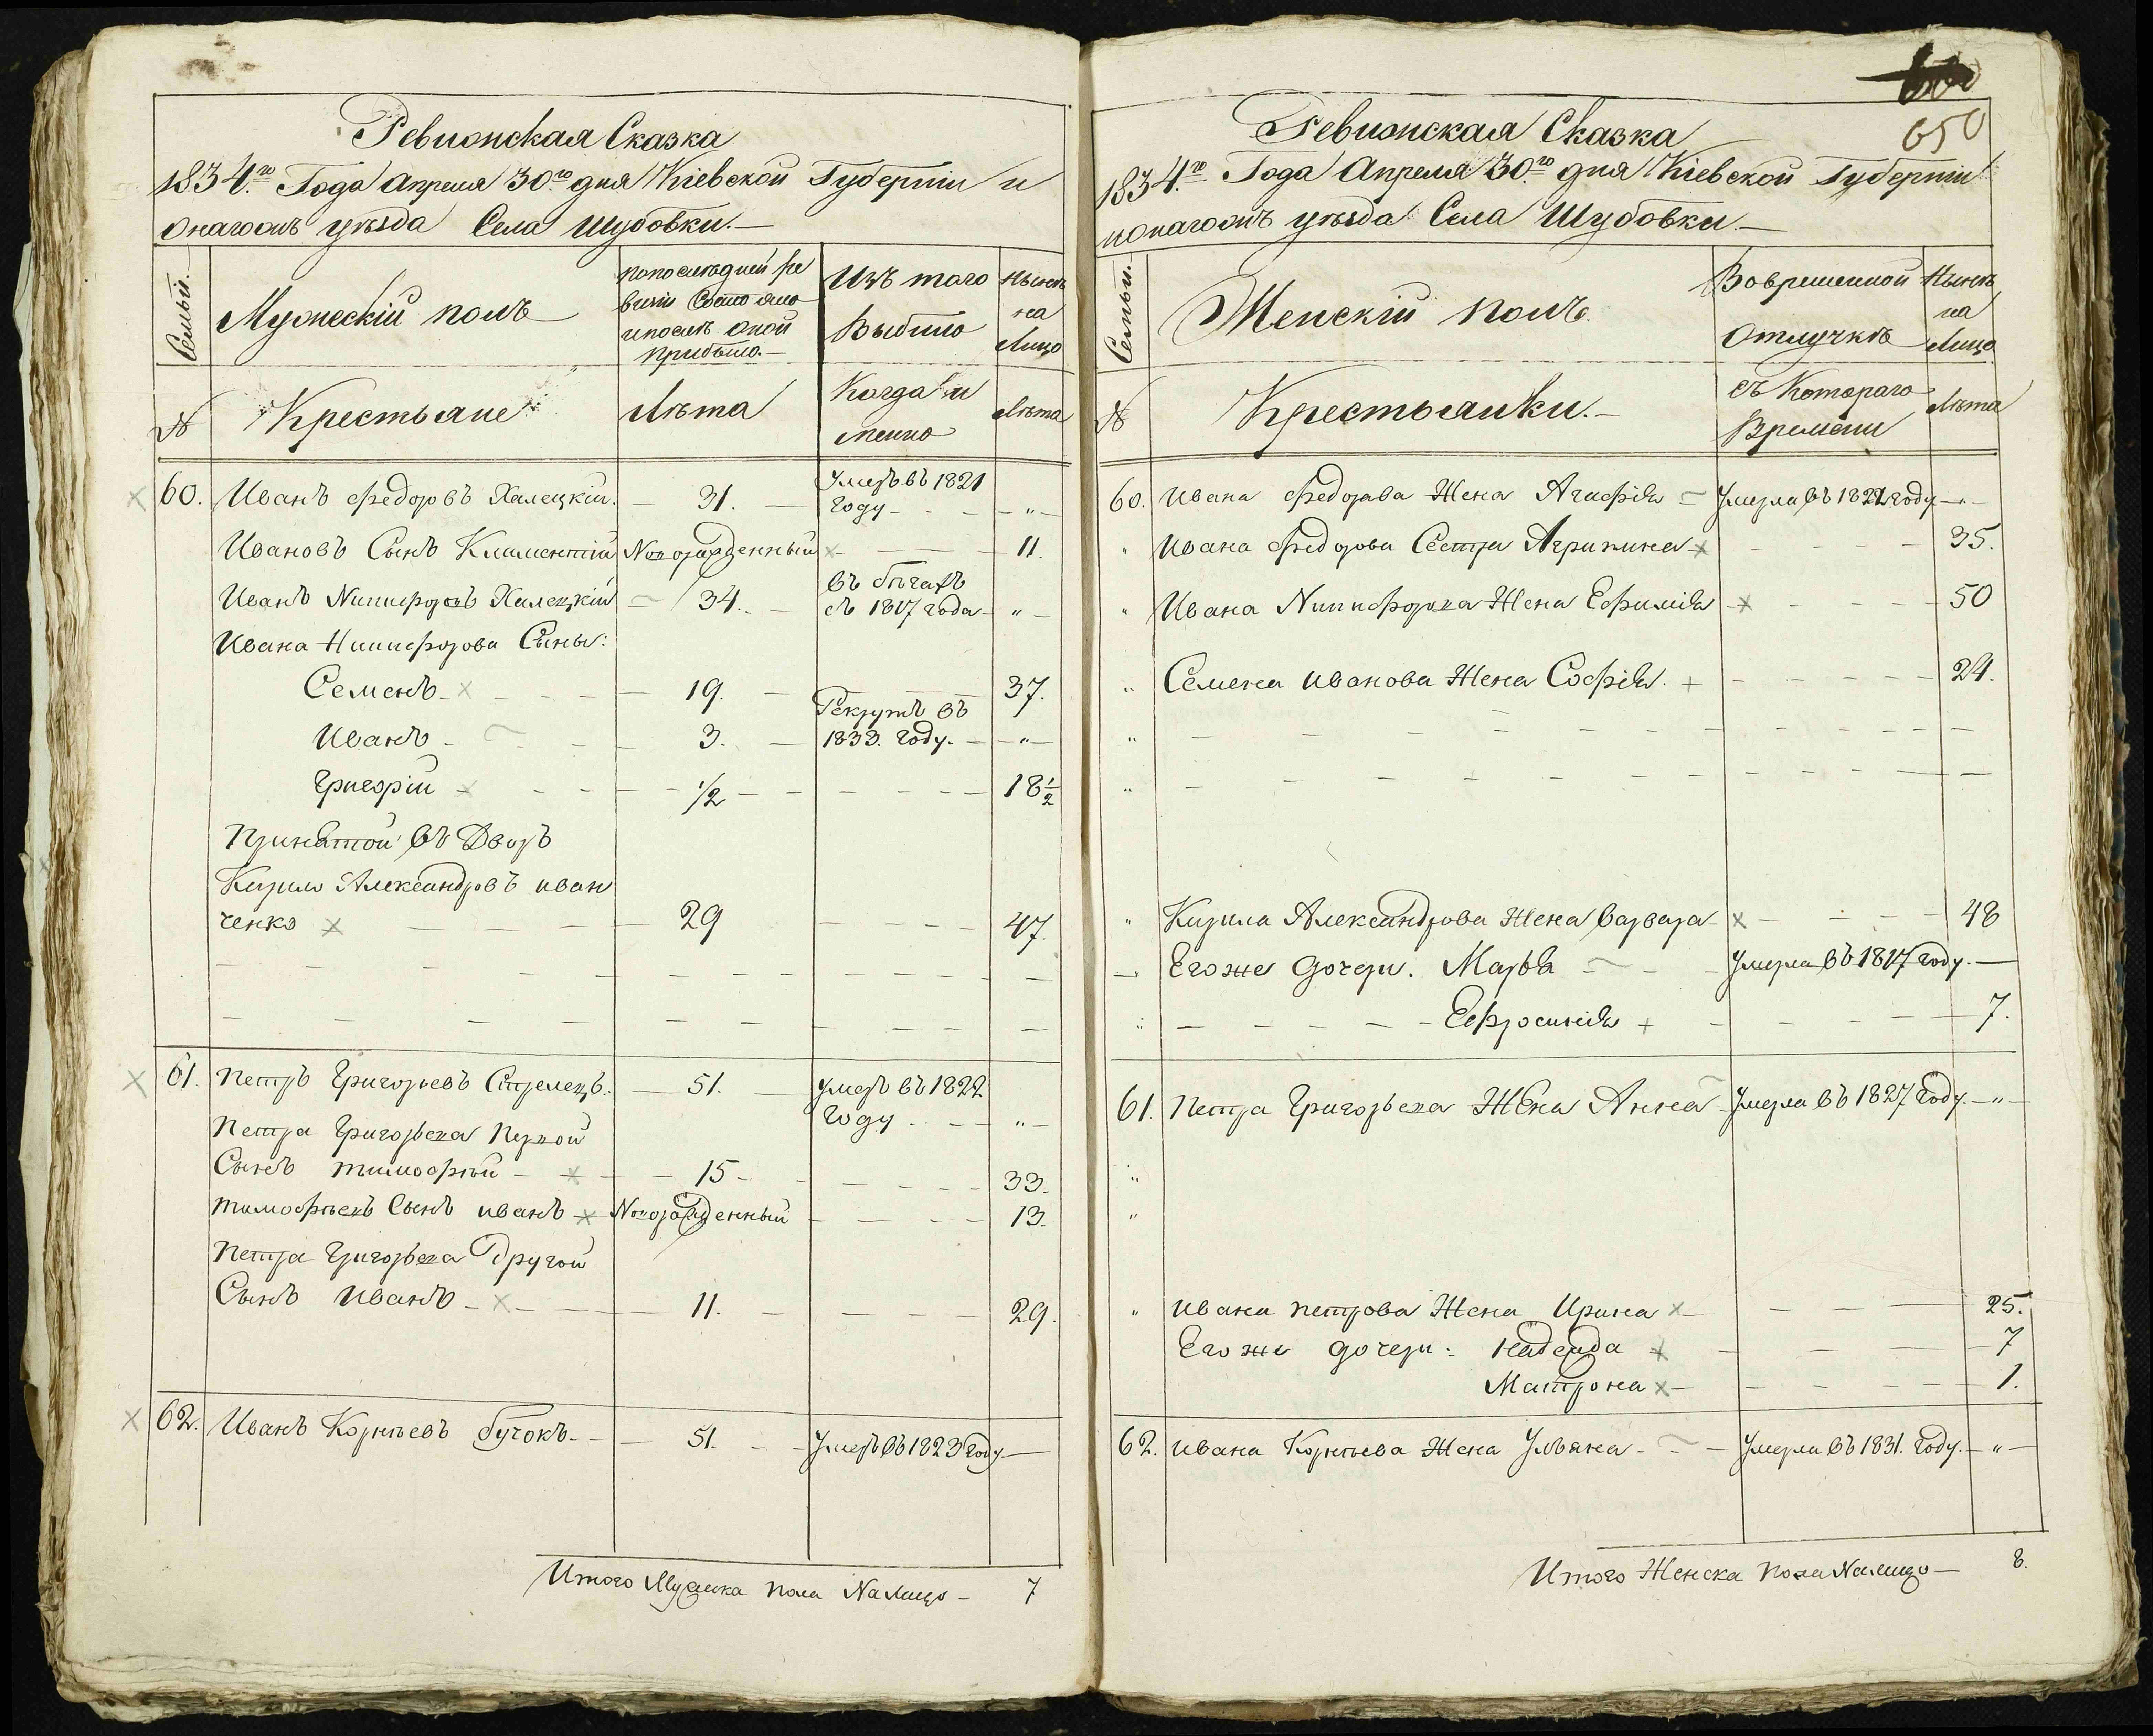 Ревизская Сказка
1834.го Года Апреля 30.го дня Кіевской Губерніи и
онагожъ уѣзда Села Шубовки.—
Семьи.
Мужескій полъ
По последней ре
визіи Состояло
и после оной
прибыло.—
Изъ того
Выбыло
Нынѣ
на
Лицо
№
Крестьяне
Лѣта
Когда и
менно
Лѣта
60. Иванъ Федоровъ Халецкій. — 31. — Умеръ въ 1821
году — — „ —
Ивановъ Сынъ Климентій Новорожденный — — 11.
Иванъ Никифоровъ Халецкій — 34. — въ бѣгахъ
съ 1817 года — „ —
Ивана Никифорова Сыны:
Семенъ — 19. — — 37.
Иванъ — 3. — Рекрутъ въ
1833. году. — „ —
Григорій — 1/2 — — 18 1/2
Принятой въ Дворъ
Кирило Александровъ иван
ченко — 29 — 47.
61. Петръ Григорьевъ Стрелецъ. — 51. — умеръ въ 1822
году — — „ —
Петра Григорьева Первой
Сынъ тимофѣй — 15 — — 33.
тимофѣевъ Сынъ иванъ — Новорожденный — 13.
Петра Григорьева Другой
Сынъ Иванъ — 11. — — 29.
62. Иванъ Корнѣевъ бучокъ — 51. — Умеръ въ 1823 году —
Итого Мужеска пола На Лицо — 7
650
Ревизская Сказка
1834.го Года Апреля 30.го дня Кіевской Губерніи
и онагожъ уѣзда Села Шубовки —
Семьи.
Женскій полъ.
Во временной
Отлучкѣ
Нынѣ
на
Лицо
№
Крестьянки.—
съ Котораго
Времени
Лѣта
60. Ивана Федорова Жена Агафія — Умерла въ 1822 году — „ —
„ Ивана Федорова Сестра Агрипина — 35.
„ Ивана Никифорова Жена Ефимія — 50
„ Семена иванова Жена Софія — 24.
„ Кирила Александрова Жена варвара — 48
Его же дочери. Марья — Умерла въ 1817 году. —
Ефросинія — 7.
61. Петра Григорьева Жена Анна — Умерла въ 1827 году. — „ —
„ ивана петрова Жена Ирина — 25.
Его же дочери: Надежда — 7
Матрона — 1.
62. ивана Корнѣева Жена Ульяна — Умерла въ 1831. году. — „ —
Итого Женска пола На лицо — 8.